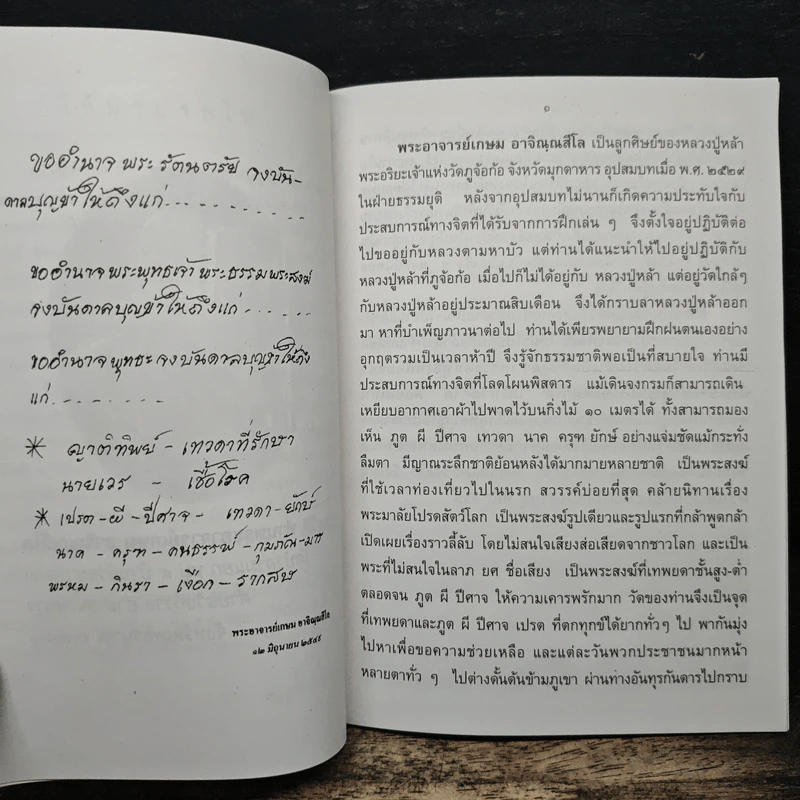 ขออำนาจ พระ รัตนตรัย จงบัน-
ดาลบุญข้าให้ถึงแก่ . . . . . . . . . . . . .
ขออำนาจพระพุทธเจ้า พระธรรม พระสงฆ์
จงบันดาลบุญข้าให้ถึงแก่ . . . . . . . .
ขออำนาจพุทธะ จงบันดาลบุญข้าให้ถึง
แก่. . . . . . . .
* ญาติทิพย์ – เทวดาที่รักษา
นายเวร – เชื้อโรค
* เปรต – ผี – ปีศาจ – เทวดา – ยักษ์
นาค – ครุฑ – คนธรรพ์ – กุมภัณ – มาร
พรหม – กินรา – เงือก – รากสิษ
พระอาจารย์เกษม อาจิณฺณสีโล
๑๒ มิถุนายน ๒๕๔๙
๑
พระอาจารย์เกษม อาจิณฺณสีโล เป็นลูกศิษย์ของหลวงปู่หล้า
พระอริยะเจ้าแห่งวัดภูจ้อก้อ จังหวัดมุกดาหาร อุปสมบทเมื่อ พ.ศ. ๒๕๒๙
ในฝ่ายธรรมยุติ หลังจากอุปสมบทไม่นานก็เกิดความประทับใจกับ
ประสบการณ์ทางจิตที่ได้รับจากการฝึกเล่น ๆ จึงตั้งใจอยู่ปฏิบัติต่อ
ไปขออยู่กับหลวงตามหาบัว แต่ท่านได้แนะนำให้ไปอยู่ปฏิบัติกับ
หลวงปู่หล้าที่ภูจ้อก้อ เมื่อไปก็ไม่ได้อยู่กับ หลวงปู่หล้า แต่อยู่วัดใกล้ๆ
กับหลวงปู่หล้าอยู่ประมาณสิบเดือน จึงได้กราบลาหลวงปู่หล้าออก
มา หาที่บำเพ็ญภาวนาต่อไป ท่านได้เพียรพยายามฝึกฝนตนเองอย่าง
อุกฤตรวมเป็นเวลาห้าปี จึงรู้จักธรรมชาติพอเป็นที่สบายใจ ท่านมี
ประสบการณ์ทางจิตที่โลดโผนพิสดาร แม้เดินจงกรมก็สามารถเดิน
เหยียบอากาศเอาผ้าไปพาดไว้บนกิ่งไม้ ๑๐ เมตรได้ ทั้งสามารถมอง
เห็น ภูต ผี ปีศาจ เทวดา นาค ครุฑ ยักษ์ อย่างแจ่มชัดแม้กระทั่ง
ลืมตา มีญาณระลึกชาติย้อนหลังได้มากมายหลายชาติ เป็นพระสงฆ์
ที่ใช้เวลาท่องเที่ยวไปในนรก สวรรค์บ่อยที่สุด คล้ายนิทานเรื่อง
พระมาลัยโปรดสัตว์โลก เป็นพระสงฆ์รูปเดียวและรูปแรกที่กล้าพูดกล้า
เปิดเผยเรื่องราวลี้ลับ โดยไม่สนใจเสียงส่อเสียดจากชาวโลก และเป็น
พระที่ไม่สนใจในลาภ ยศ ชื่อเสียง เป็นพระสงฆ์ที่เทพยดาชั้นสูง-ต่ำ
ตลอดจน ภูต ผี ปีศาจ ให้ความเคารพรักมาก วัดของท่านจึงเป็นจุด
ที่เทพยดาและภูต ผี ปีศาจ เปรต ที่ตกทุกข์ได้ยากทั่วๆ ไป พากันมุ่ง
ไปหาเพื่อขอความช่วยเหลือ และแต่ละวันพวกประชาชนมากหน้า
หลายตาทั่ว ๆ ไปต่างดั้นด้นข้ามภูเขา ผ่านทางอันทุรกันดารไปกราบ